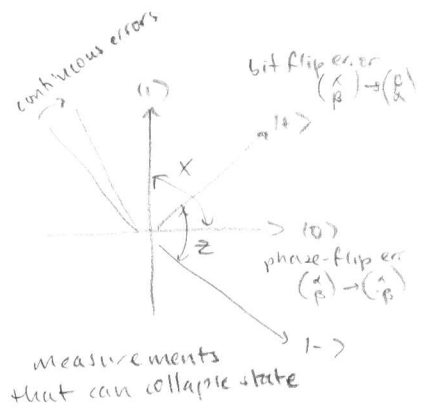 continuous errors
bit flip error
(α β) → (β α)
|1⟩
|+⟩
X
|0⟩
Z
phase-flip er.
(α β) → (α -β)
|-⟩
measurements
that can collapse state